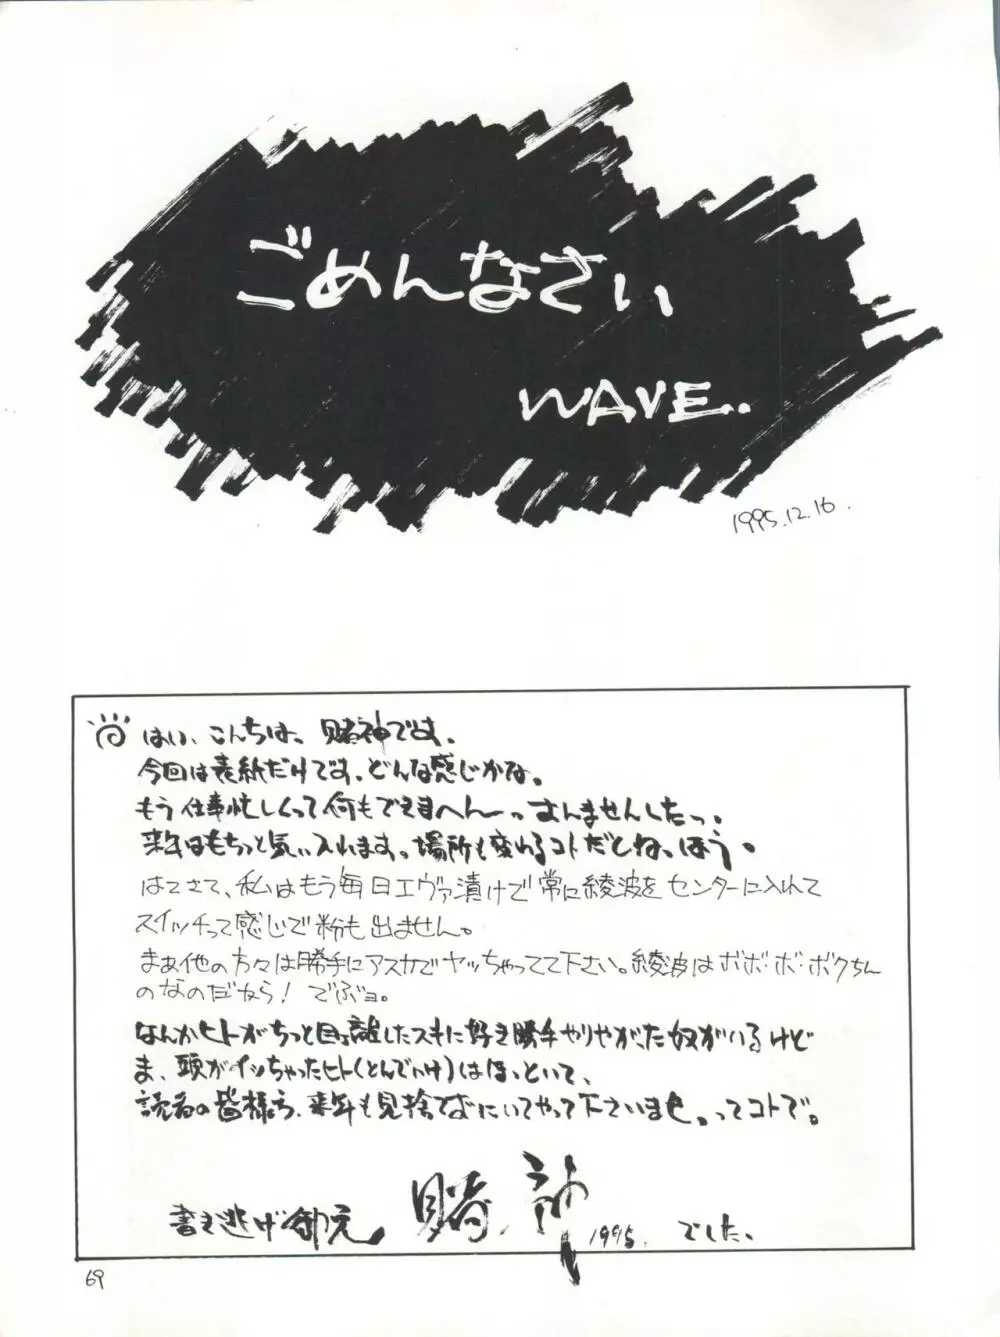 ごめんなさい
WAVE.
1995.12.16.
はい、こんちは、賭神です。
今回は表紙だけです。どんな感じかな。
もう仕事忙しくって何もできまへんーっすんませんしたっ。
来年はもちっと気い入れます。場所も変わるコトだしね。ほう。
はてさて、私はもう毎日エヴァ漬けで常に綾波をセンターに入れて
スイッチって感じで粉も出ません。
まぁ他の方々は勝手にアスカでヤッちゃってて下さい。綾波はボボ・ボ・ボクちん
のなのだから！でぶヨ。
なんかヒトがちっと目ぇ離したスキに好き勝手やりやがった奴がいるけど
ま、頭がイッちゃったヒト(とんでいけ)はほっといて、
読者の皆様方、来年も見捨てずにいてやって下さいませ。ってコトで。
書き逃げ御免
賭神 1995. でした。
69